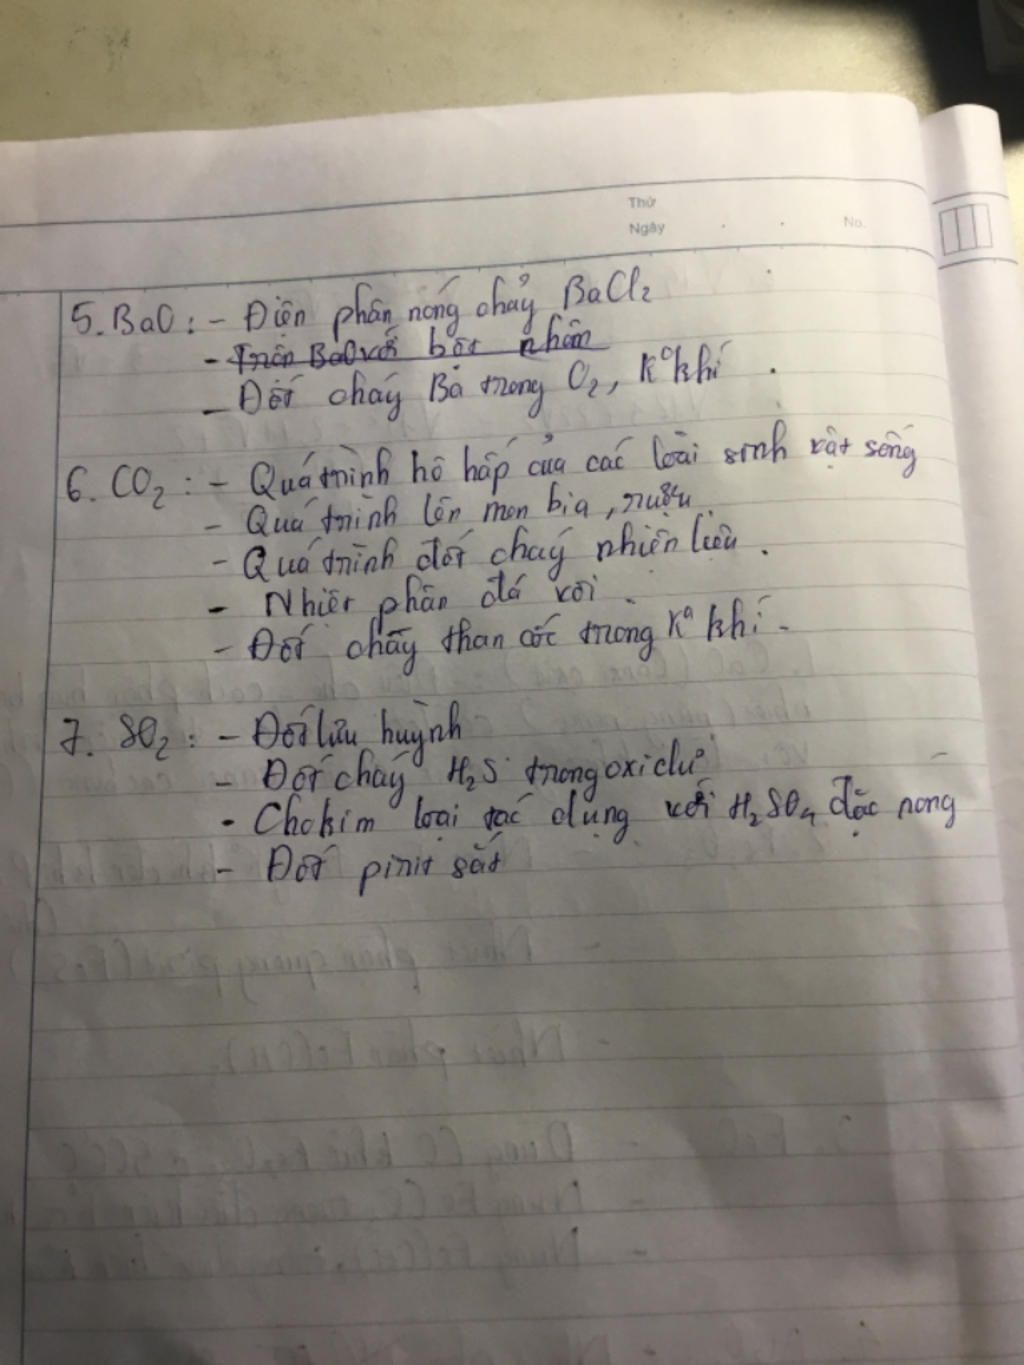 Thứ
Ngày . . No.
5. BaO : - Điện phân nóng chảy BaCl2
- Trộn BaO với bột nhôm
- Đốt cháy Ba trong O2, Ko khí .
6. CO2 : - Quá trình hô hấp của các loài sinh vật sống
- Quá trình lên men bia, rượu.
- Quá trình đốt cháy nhiên liệu .
- Nhiệt phân đá vôi .
- Đốt cháy than cốc trong Ko khí -
7. SO2 : - Đốt lưu huỳnh
- Đốt cháy H2S trong oxi dư
- Cho kim loại tác dụng với H2SO4 đặc nóng
- Đốt pirit sắt